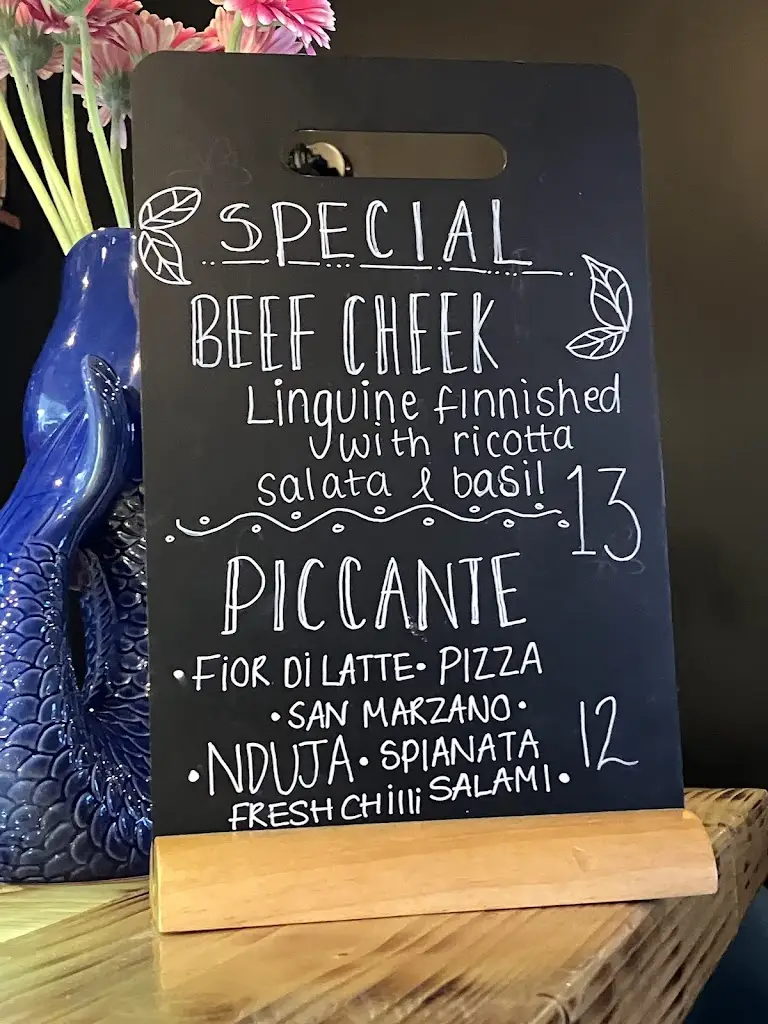 SPECIAL
BEEF CHEEK
Linguine finnished
with ricotta
salata & basil
13
PICCANTE
•FIOR DI LATTE• PIZZA
•SAN MARZANO•
12
•NDUJA•SPIANATA
SALAMI•
FRESH CHilli